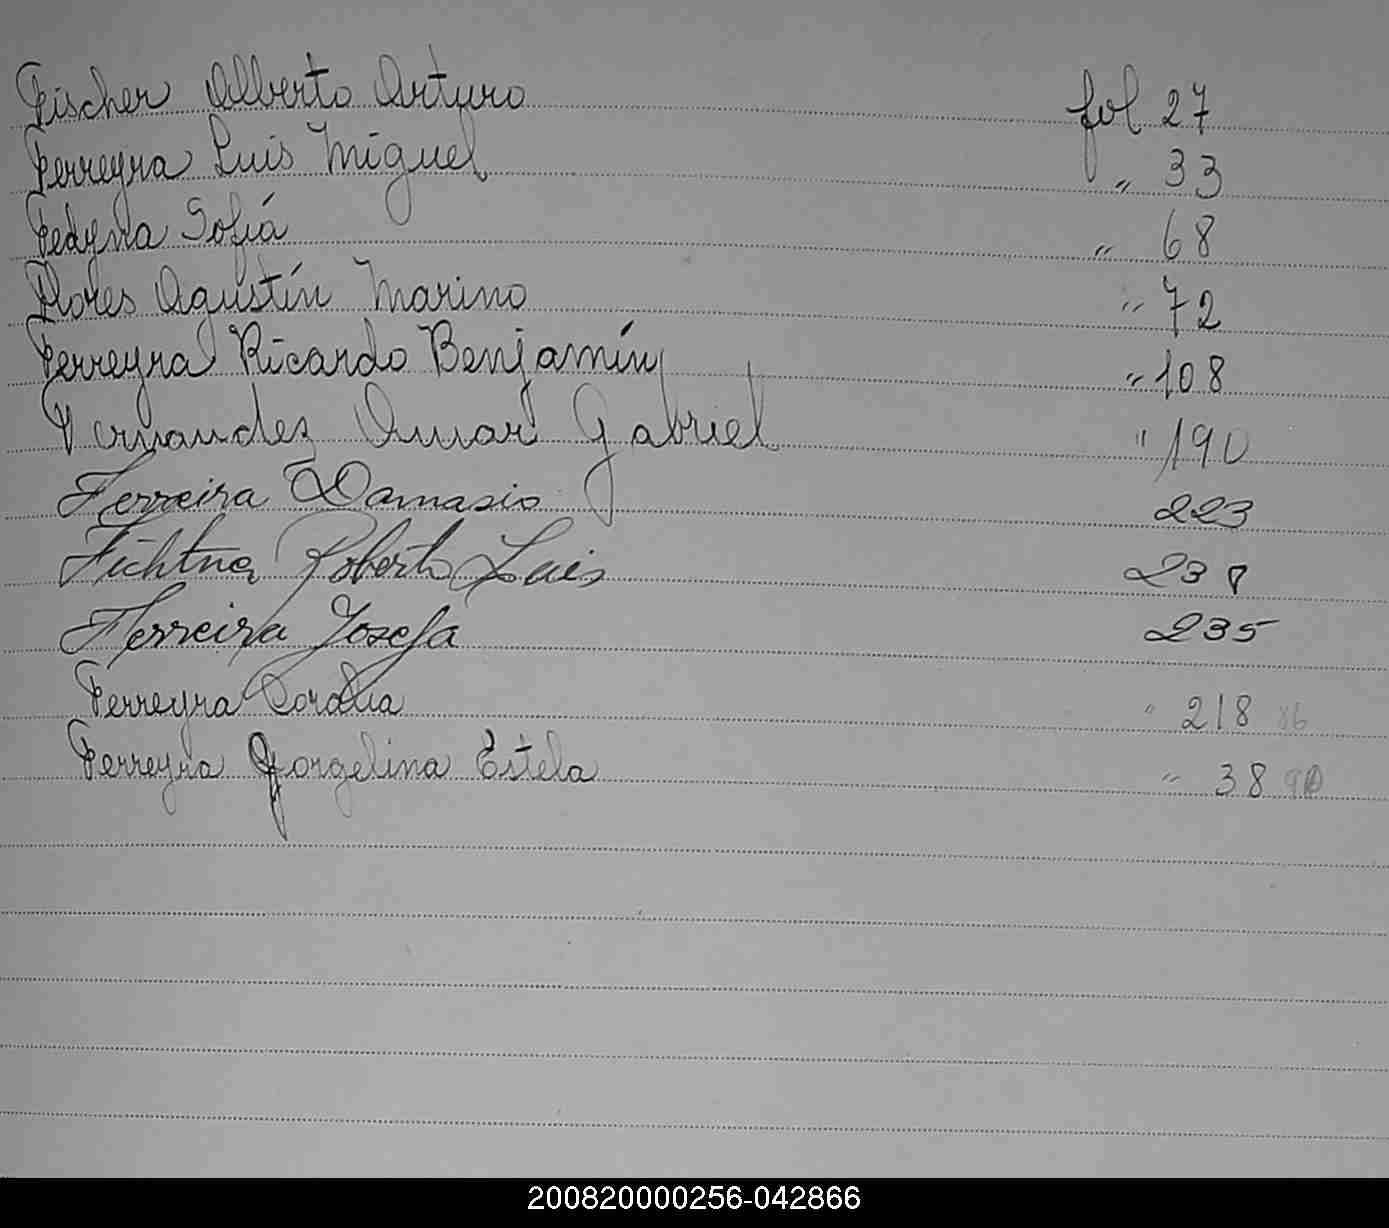 Fischer Alberto Arturo fol 27
Ferreyra Luis Miguel " 33
Fedyna Sofiá " 68
Flores Agustín Marino " 72
Ferreyra Ricardo Benjamín " 108
Fernandez Omar Gabriel " 190
Ferreira Damasio 223
Fichtner Roberto Luis 237
Ferreira Josefa 235
Ferreyra Coralia " 218 86
Ferreyra Jorgelina Estela " 38
200820000256-042866